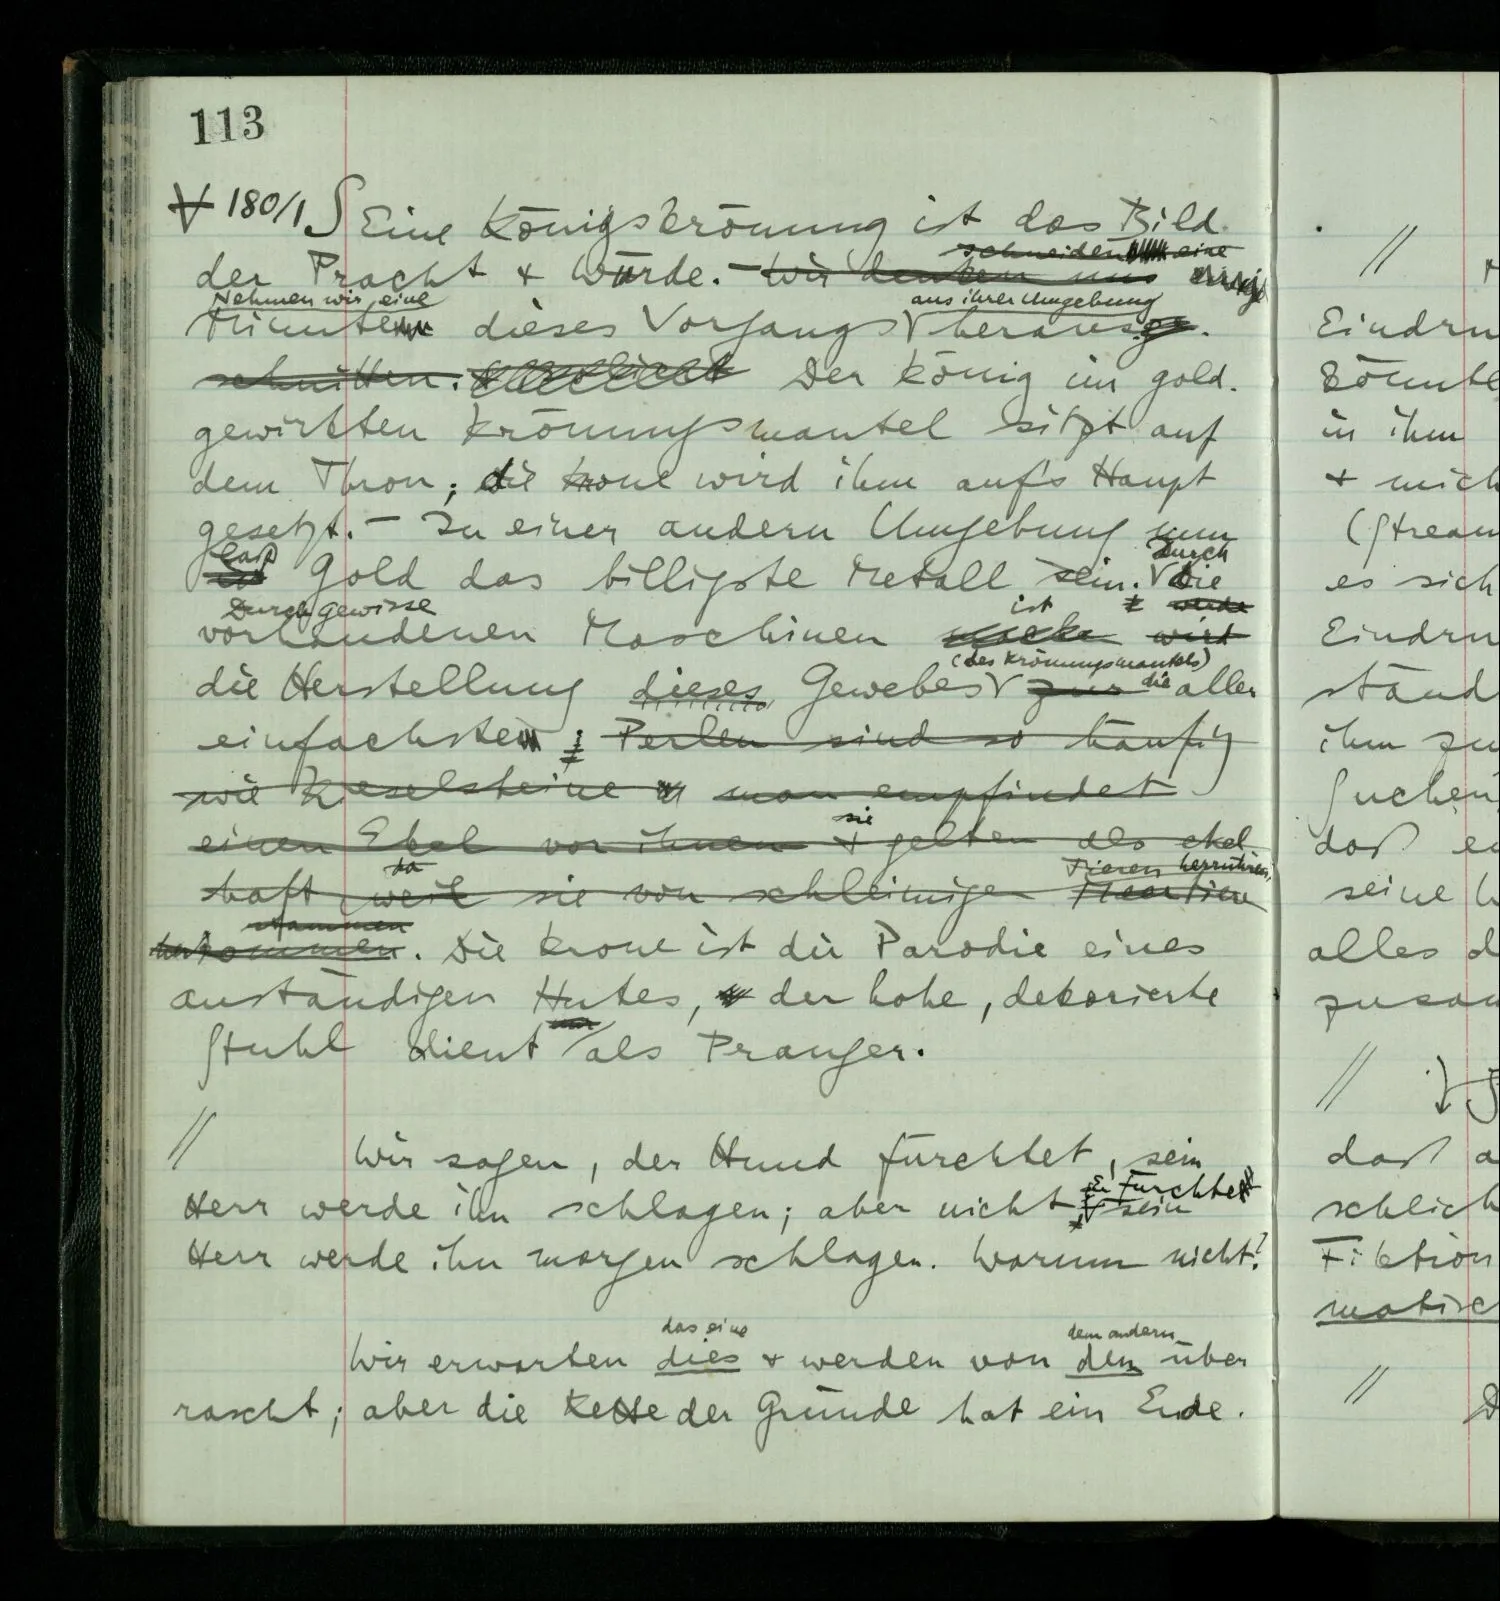 113
∀ 180/1 ∫ Eine Königskrönung ist das Bild
der Pracht & Würde. – Wir denken uns einige
schneiden eine
Nehmen wir eine
aus ihrer Umgebung
Minuten dieses Vorgangs heraus ge-
schnitten. Der König im gold-
gewirkten Krönungsmantel sitzt auf
dem Thron; die Krone wird ihm aufs Haupt
gesetzt. – In einer andern Umgebung nun
laß
Durch
ist Gold das billigste Metall sein. Die
Durch gewisse
ist
werde
vorhandenen Maschinen wird
(des Krönungsmantels)
die Herstellung dieses Gewebes zur die aller
einfachsten; Perlen sind so häufig
wie Kieselsteine man empfindet
einen Ekel vor ihnen & sie gelten als ekel
haft, weil sie von schleimigen Meertiere
da
Tieren herrühren,
stammen
herkommen. Die Krone ist die Parodie eines
anständigen Hutes, der hohe, dekorierte
Stuhl dient nur als Pranger.
// Wir sagen, der Hund fürchtet, sein
Herr werde ihn schlagen; aber nicht, er fürchtet sein
Herr werde ihn morgen schlagen. Warum nicht?
das eine
dem andern
Wir erwarten dies & werden von dem über
rascht; aber die Kette der Gründe hat ein Ende.
//
Eindru
könnte
in ihm
& mich
(stream
es sich
Eindru
ständ
ihm zu
suchen
daß
seine
alles d
zusam
//
daß a
schlich
Fiktion
//